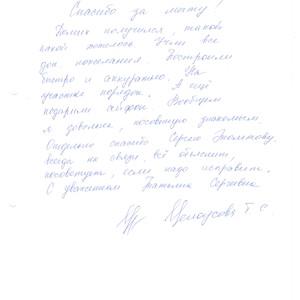 Спасибо за мечту!
Домик получился, такой
какой хотелось. Учли все
дои пожелания. Построили
быстро и аккуратно. На
участке порядок. А ещё
подарили айфон. Вообщем
я довольна, посоветую знакомым.
Отдельно спасибо Сергею
всегда на связи, всё объяснит,
посоветует, если надо исправит.
С уважением Татьяна Сергеевна
Т С.